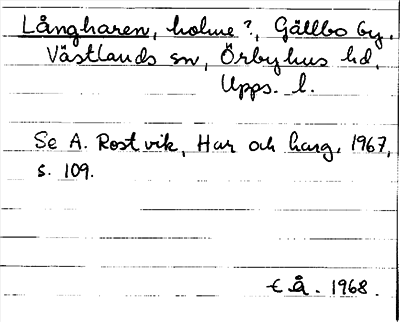 Långharen, holme?, Gällbo by,
Västlands sn, Örbyhus hd,
Upps. l.
Se A. Rostvik, Har och harg, 1967,
s. 109.
Å. 1968.